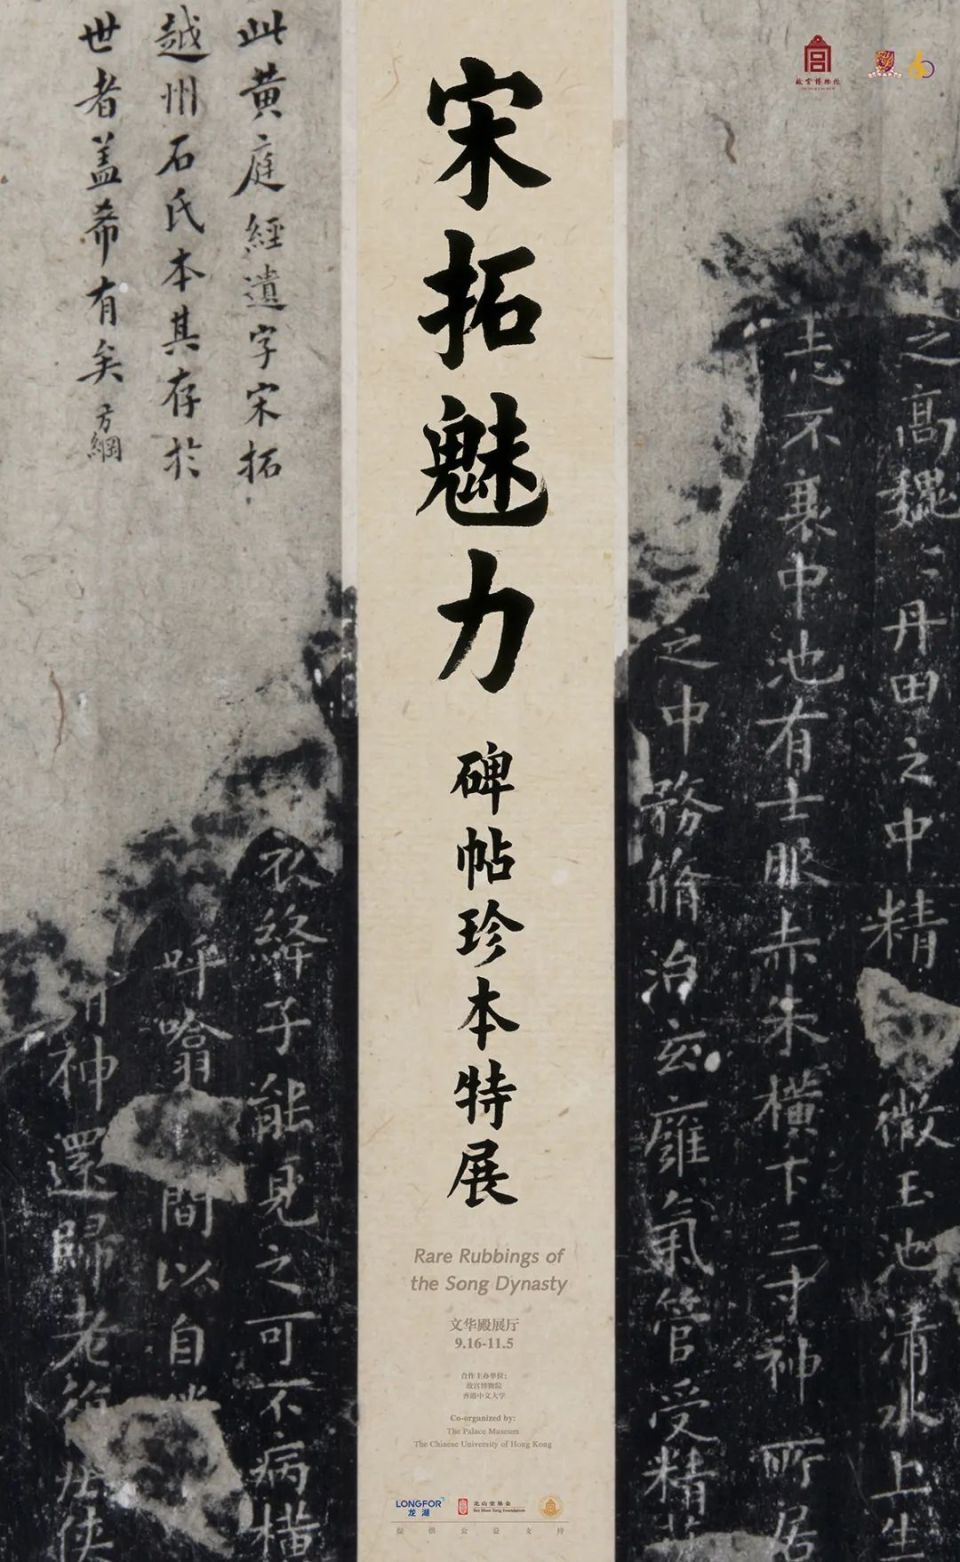 宋拓魅力
碑帖珍本特展
Rare Rubbings of
the Song Dynasty
文华殿展厅
9.16-11.5
合作主办单位：
故宫博物院
香港中文大学
Co-organized by:
The Palace Museum
The Chinese University of Hong Kong
LONGFOR
龙湖
北山堂基金
Bei Shan Tang Foundation
提供公益支持
故宫博物院
此黄庭經遺字宋拓
越州石氏本其存於
世者盖希有矣 方綱
之高魏〻丹田之中精
微玉池清水上生
志不衰中池有士服赤朱横下三寸神所居
之中務脩治玄癰氣管受精
衣絳子能見之可不病横
呼噏
間以自
神還歸老